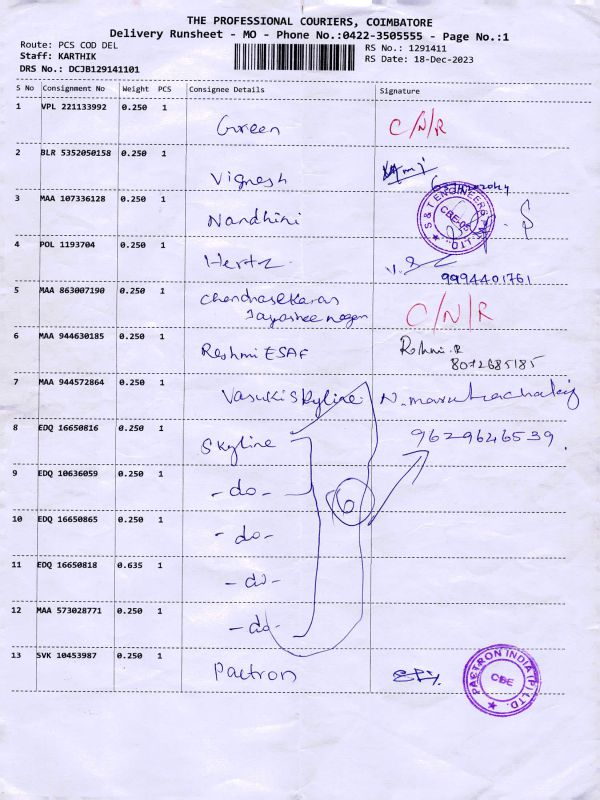 THE PROFESSIONAL COURIERS, COIMBATORE
Delivery Runsheet - MO - Phone No.:0422-3505555 - Page No.:1
Route: PCS COD DEL
RS No.: 1291411
Staff: KARTHIK
RS Date: 18-Dec-2023
DRS No.: DCJB129141101
S No Consignment No Weight PCS Consignee Details Signature
1 VPL 221133992 0.250 1
Green C/N/R
2 BLR 5352050158 0.250 1
Vignesh
3 MAA 107336128 0.250 1
Nandhini
S & T ENGINEERS
CBE
LTD.
4 POL 1193704 0.250 1
Hertz
9994401761
5 MAA 863007190 0.250 1
Chandrasekaran
C/N/R
6 MAA 944630185 0.250 1
Reshmi ESAF
Roshni.R
8072685185
7 MAA 944572864 0.250 1
Vasuki Skyline
8 EDQ 16650816 0.250 1
Skyline
9629646539.
9 EDQ 10636059 0.250 1
-do-
6
10 EDQ 16650865 0.250 1
-do-
11 EDQ 16650818 0.635 1
-do-
12 MAA 573028771 0.250 1
-do-
13 SVK 10453987 0.250 1
Pactron
PACTRON INDIA (P) LTD.
CBE